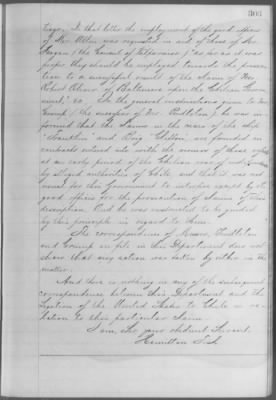 303
tiago. In that letter the employment of the good offices
of Mr. was requested in aid of those of Mr.
the Consul at Valparaiso "so far as it was
proper they should be employed towards the prosecu-
tion to a successful result of the claim of Mr.
Robert Oliver of Baltimore upon the Chilean Govern-
ment," &c. In the general instructions given to Mr.
(the successor of Mr. Pendleton) he was in-
formed that the claims in the case of the ship
and Brig were founded on
contracts entered into with the owners of those vessels
at an early period of the Chilean war of independence
by alleged authorities of Chile, and that it was not
usual for this Government to interfere except by its
good offices for the prosecution of claims of this
description. And he was instructed to be guided
by this principle in regard to them.
The correspondence of Messrs. Pendleton
and on file in this Department does not
show that any action was taken by either in the
matter.
And there is nothing in any of the subsequent
correspondence between this Department and the
Legation of the United States to Chile in re-
lation to this particular claim.
I am, Sir, your obedient Servant.
Hamilton Fish